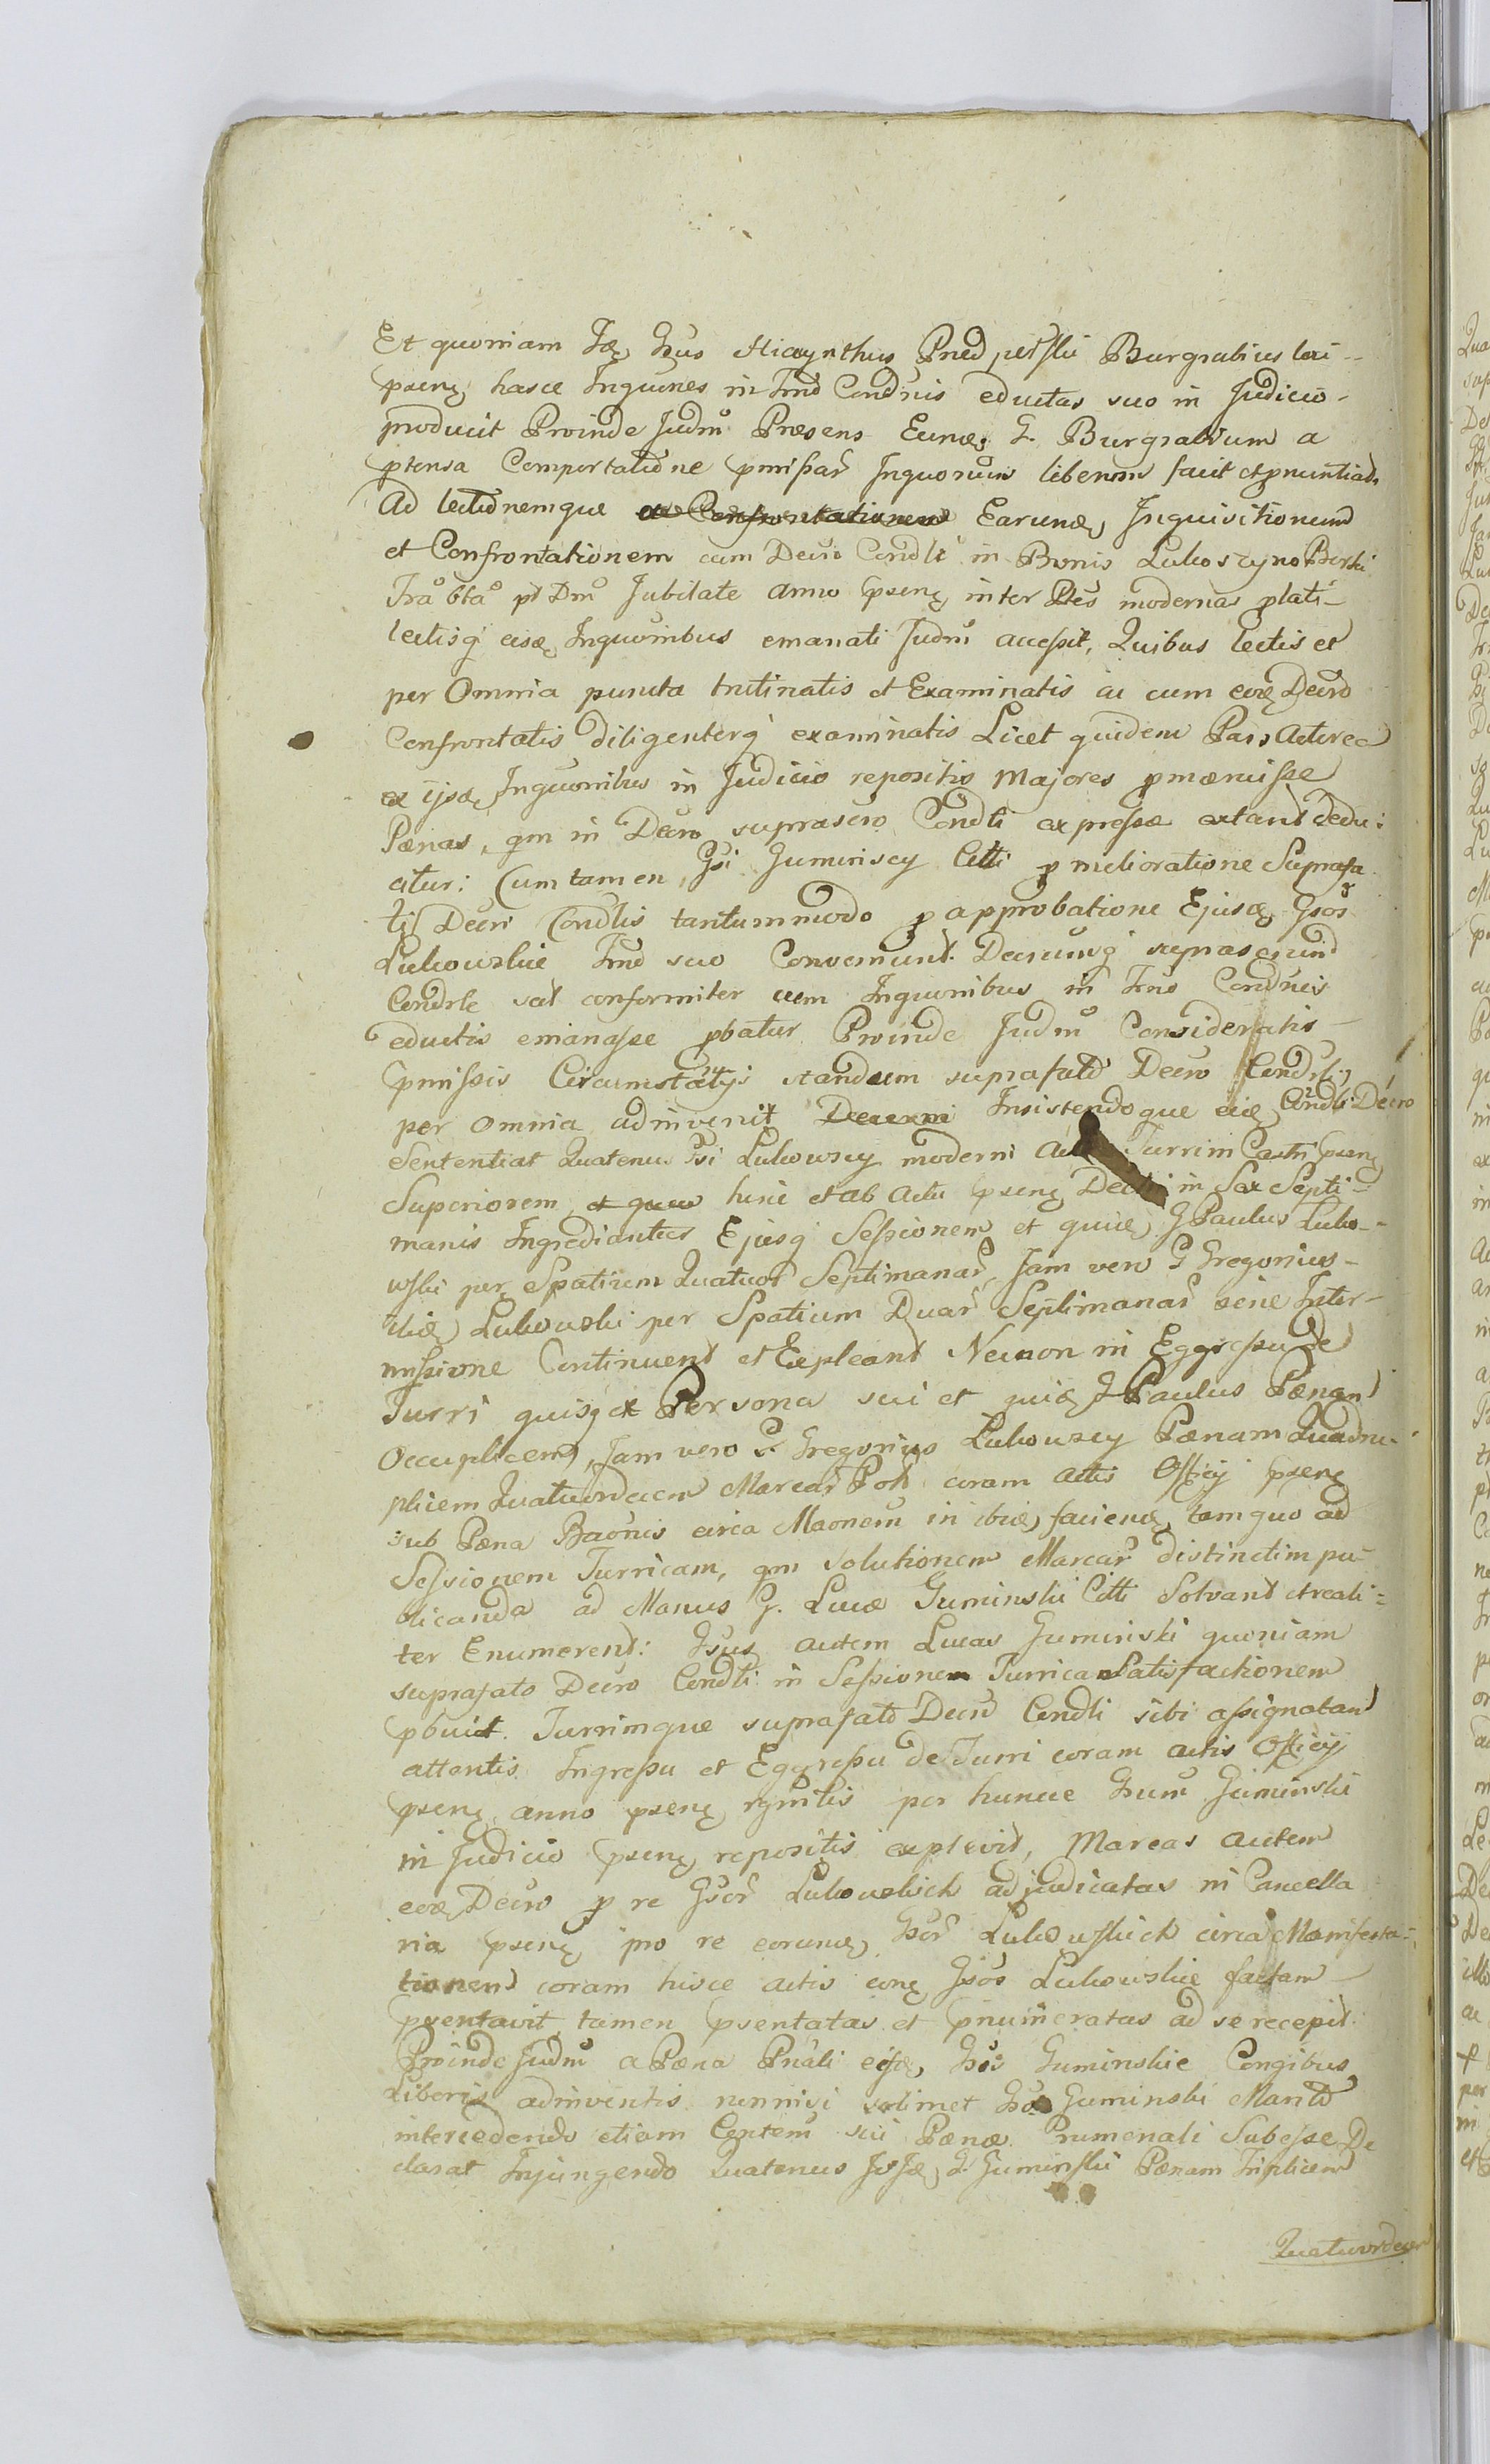 Et quoniam Idę Gsus Hiacynthus Burgrabius loci
psenę hasce Inquönes in Trno Condnis eductas suo in Judicio
produxit Proinde Judm Præsens Eundę G. Burgrabium a
ptensa Comportatione pmißar Inquonum liberum facit et pnuntiat
Ad lectionemque ac Confrontationem Earundę Inquisitionum
et Confrontationem cum Decro Condli in Bonis
pt Dm Jubilate Anno psenę inter Ptes modernas plati
lectisq eisdę Inquonibus emanati Judm acceßit, Quibus lectis et
per Omnia puncta trutinatis et Examinatis ac cum eodę Decro
Confrontatis diligenterq examinatis Licet quidem Pars Actorea
ex ijsdę Inquonibus in Judicio repositis Majores pmæruiße
Pænas, qm in Decro suprascro Condli expreßæ extant dedu:
citur: Cum tamen Gsi Guminscy Citti p melioratione Suprafa
ti Decri Condlis tantummodo p approbatione Ejusdę Gsos
Lukowskie Trno suo Convenirent. Decrumq suprascrum
Condrle sat conformiter cum Inquonibus in Trno Condnis
eductis emanaße pbatur Proinde Judm Consideratis
pmißis Circumstatijs standum suprafato Decro Condrli
per omnia adinvenit Insistendoque eidę Condli Decro
Sententiat Quatenus Gsi Lukowscy moderni Turrim Castri psenę
Superiorem hinc et ab actu psenę in Sex Septi
manis Ingrediantur Ejusq Seßionem et quidę G Paulus Luko
wski per Spatium Quatuor Septimanar, Jam vero G Gregorius
itidę Lukowski per Spatium Duar Septimanar sine Inter
mißione Continuent et Expleant Necnon in Eggreßu de
Turri quisq ex Persona sui et quidę G Paulus Pænam
Occuplicem, Jam vero G. Gregorius Lukowscy Pænam Quadru
plicem Quatuordecem Marcar Pol. coram actis Officij psenę
sub Pæna Baönis circa Maonem in ibidę faciendę, tam quo ad
Seßionem Turricam, qm Solutionem Marcar distinctim pu
blicanda ad Manus G. Lucæ Guminski Citti Solvant et reali
ter Enumerent: Gsus autem Lucas Guminski quoniam
suprafato Decro Condli in Seßione Turrica Satisfactionem
pbuit. Turrimque suprafato Decro Condli sibi aßignatam
attentis Ingreßu et Eggreßu de Turri coram actis Officij
psenę anno psenę rgnitis per hunce Gsum Guminski
in Judicio psenę repositis explevit, Marcas autem
eodę Decro p re Gsor Lukowskich adjudicatas in Cancella
ria psenę pro re eorundę Gsor Lukowskich circa Manifesta
tionem coram hisce actis conę Gsos Lukowskie factam
psentavit tamen psentatas et pnumeratas ad se recepit.
Proinde Judm a Pæna Pnali eisdę Gsos Guminskie Congibus
Liberis adinventis nonnisi solimet Gsæ Guminski Marito
intercedendo etiam Centem sui Pænæ Subeße De
clarat Injungendo Quatenus Idę G. Guminski Pænam Triplicem
Quatuordecem